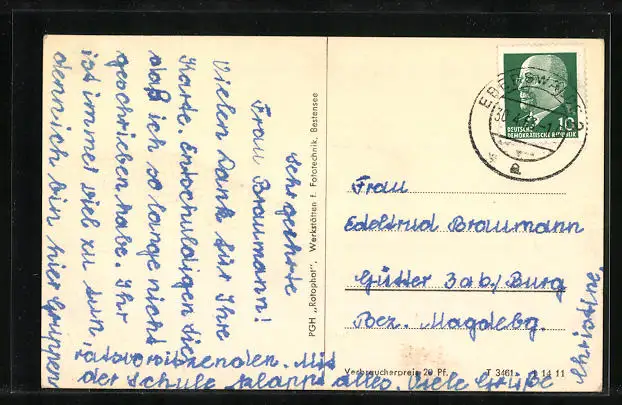 Sehr geehrte
Frau Braumann!
Vielen Dank für Ihre
Karte. Entschuldigen Sie,
daß ich so lange nicht
geschrieben habe. Ihr
ist immer viel zu tun,
dennich bin hier Gruppen
ratsvorsitzenden. Mit
der Schule klappt alles. Viele Grüße
PGH „Rotophot“, Werkstätten f. Fototechnik, Bestensee
EBERSWALDE
10
DEUTSCHE
DEMOKRATISCHE REPUBLIK
a
Frau
Edeltrud Braumann
Gütter 3ab/Burg
Bez. Magdebg.
Verbraucherpreis 20 Pf.
T 3461
14 11